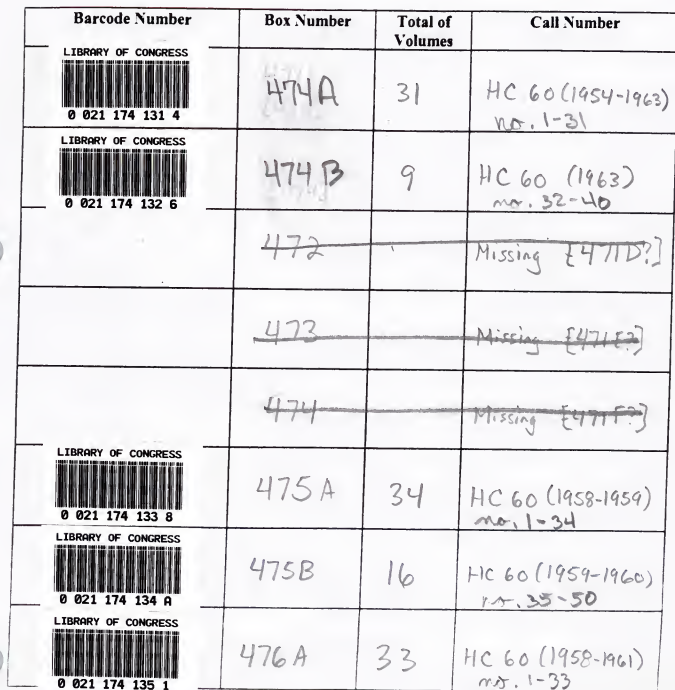 Barcode Number Box Number Total of Volumes Call Number
LIBRARY OF CONGRESS
0 021 174 131 4
474A 31 HC 60 (1954-1963)
no. 1-31
LIBRARY OF CONGRESS
0 021 174 132 6
474B 9 HC 60 (1963)
no. 32-40
472 Missing [471D?]
473 Missing [471E?]
474 Missing [471F?]
LIBRARY OF CONGRESS
0 021 174 133 8
475A 34 HC 60 (1958-1959)
no. 1-34
LIBRARY OF CONGRESS
0 021 174 134 A
475B 16 HC 60 (1959-1960)
no. 35-50
LIBRARY OF CONGRESS
0 021 174 135 1
476A 33 HC 60 (1958-1961)
no. 1-33